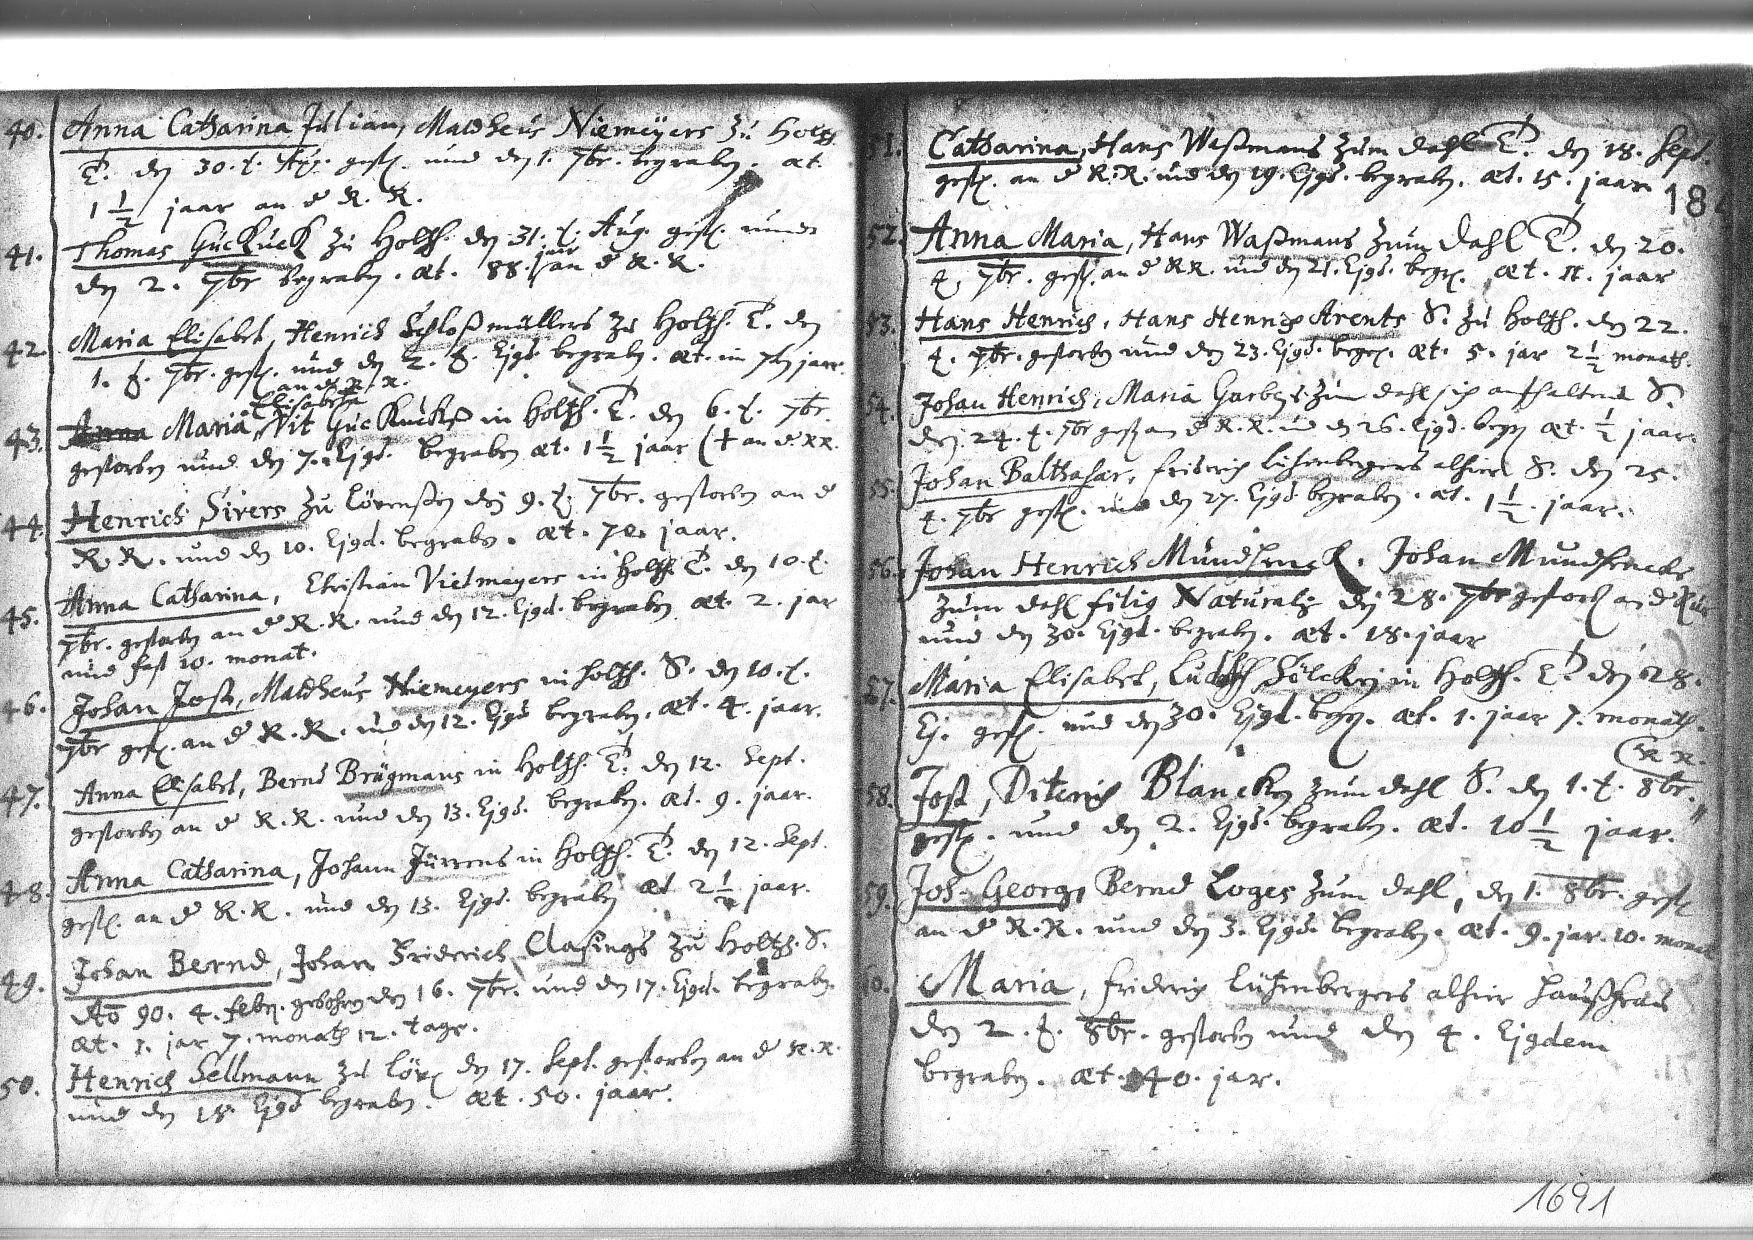 40. Anna Catharina Julian, Matdheus Niemeyers zu Holtzh.
T. den 30. t. Aug. gest. und den 1. 7br. begraben. æt.
1 1/2 jaar an d R. R.
41. Thomas Guckuck zu Holtzh. den 31. t. Aug. gest. unndt
den 2. 7br begraben. æt. 88. jaar an d R. R.
42. Maria Elisabet, Henrich Schloßmüllers zu Holtzh. T. den
1. t. 7br. gest. und den 2. t. Ejgd. begraben. æt. im 7ben jaar.
an d R. R.
Elisabeth
43. Anna Maria, Vit Guckkucks in Holtzh. T. den 6. t. 7br.
gestorben und den 7. Ejgd. begraben æt. 1 1/2 jaar († an d RR.
44. Henrich Sivers zu Lörenßen den 9. t. 7br. gestorben an d
R. R. und den 10. Ejgd. begraben. æt. 70. jaar.
45. Anna Catharina, Christian Vietmeyers in Holtzh. T. den 10. t.
7br. gestorben an d R. R. und den 12. Ejgd. begraben æt. 2. jar
und fast 10. monat.
46. Johan Jost, Matdheus Niemeyers in Holtzh. S. den 10. t.
7br gest. an d R. R. und den 12. Ejgd begraben. æt. 4. jaar.
47. Anna Elisabet, Bernd Brügmans in Holtzh. T. den 12. Sept.
gestorben an d R. R. und den 13. Ejgd. begraben. æt. 9. jaar.
48. Anna Catharina, Johann Jürrens in Holtzh. T. den 12. Sept.
gest. an d R. R. und den 13. Ejgd. begraben æt 2 1/2 jaar.
49. Johan Bernd, Johan Friderich Clasings zu Holtzh. S.
Ao 90. 4. Febr. gebohren den 16. 7br. und den 17. Ejgd. begraben.
æt. 1. jar 7. monath 12. tage.
50. Henrich Sellmann zu Lör. den 17. Sept. gestorben an d R. R.
und den 18. Ejgd begraben. æt. 50. jaar.
51. Catharina, Hans Waßmans zum Dahl T. den 18. Sept.
gest. an d R. R. und den 19. Ejgd. begraben. æt. 15. jaar
184
52. Anna Maria, Hans Waßmans zum Dahl T. den 20.
t. 7br. gest. an d RR. und den 21. Ejgd. begr. æt. 11. jaar
53. Hans Henrich, Hans Henrich Arents S. zu Holtzh. den 22.
t. 7br. gestorben und den 23. Ejgd. begr. æt. 5. jar 2 1/2 monath.
54. Johan Henrich, Maria Garbers zum Dahl sich aufhaltend S.
den 24. t. 7br gest an d R. R. und den 26. Ejgd. begr æt. 1/2 jaar.
55. Johan Balthasar, Friderich Lüsenbergers alhier S. den 25.
t. 7br gest. und den 27. Ejgd. begraben. æt. 1 1/2. jaar.
56. Johan Henrich Mundhenck, Johan Mundhencks
zum Dahl filig Naturalis den 28. 7br gestorb an d
und den 30. Ejgd. begraben. æt. 18. jaar
57. Maria Elisabet, Ludolf Sölcken in Holtzh. T. den 28.
Ej. gest. und den 30. Ejgd. begr. æt. 1. jaar 7. monath.
(R R.
58. Jost, Diterich Blancken zum Dahl S. den 1. t. 8br.
gest. und den 2. Ejgd. begraben. æt. 10 1/2 jaar.
59. Joh. Georg, Bernd Loges zum Dahl, den 1. 8br. gest
an d R. R. und den 3. Ejgd. begraben. æt. 9. jar. 10. monat
60. Maria, Friderich Lüsenbergers alhier Haußfrau
den 2. t. 8br. gestorben und den 4. Ejgdem
begraben. æt. 40. jar.
1691